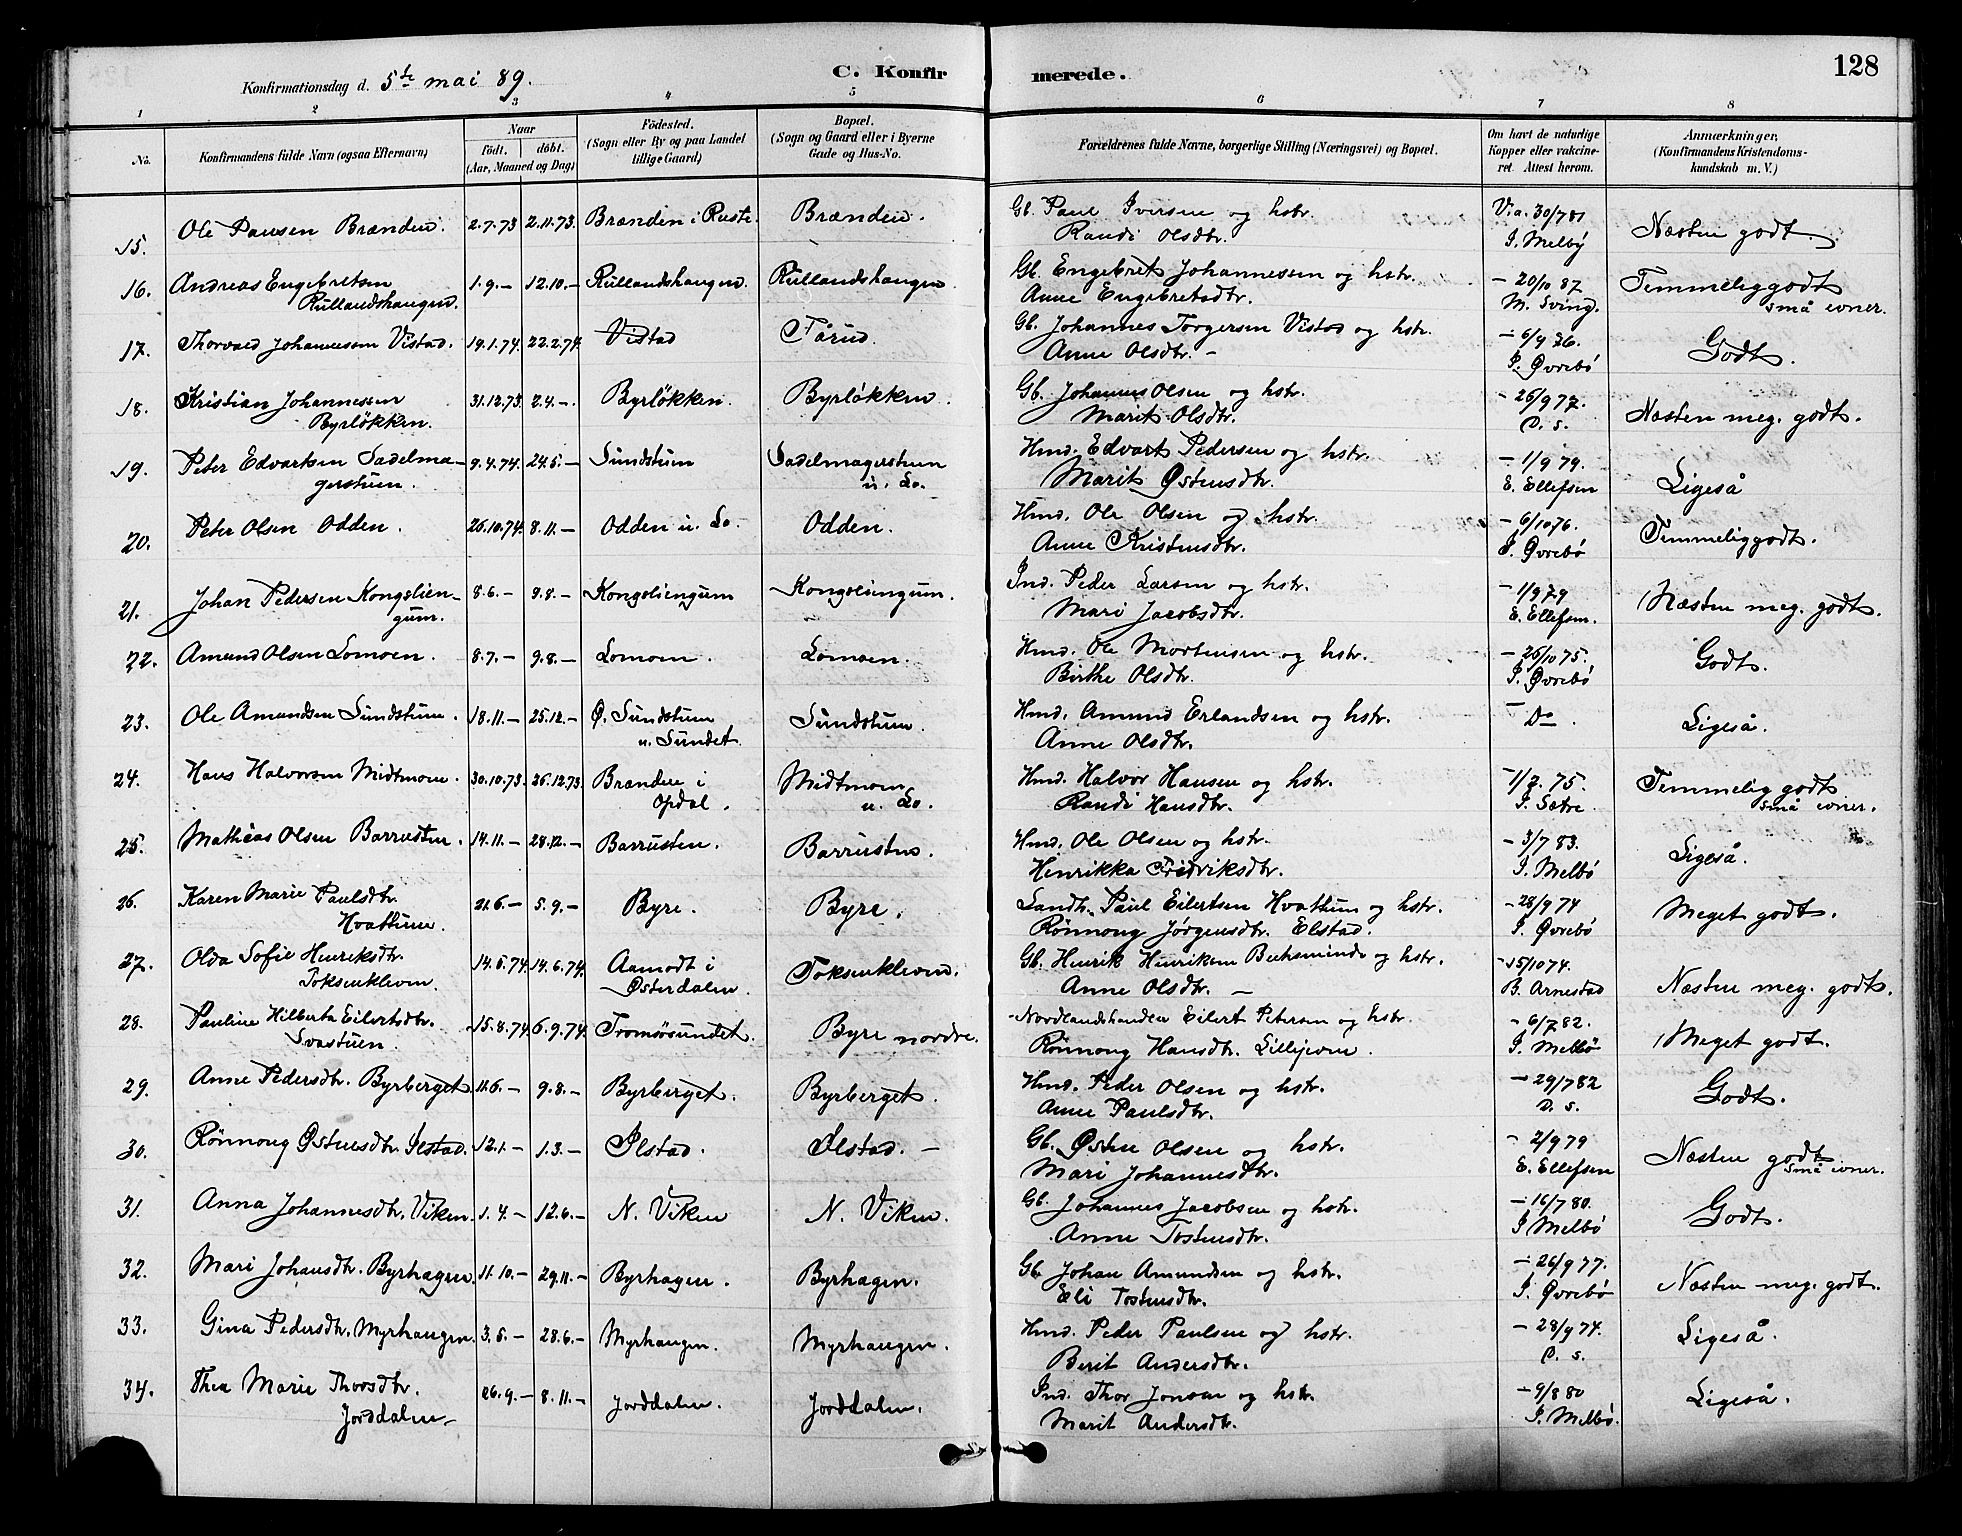 128
Konfirmationsdag d. 5te mai 89. C. Konfirmerede.
1 2 3 4 5 6 7 8
No. Konfirmandens fulde Navn (ogsaa Efternavn) Naar Födt. döbt. (Aar, Maaned og Dag) Födested. (Sogn eller By og paa Landet tillige Gaard) Bopæl. (Sogn og Gaard eller i Byerne Gade og Hus-No. Forældrenes fulde Navne, borgerlige Stilling (Næringsvei) og Bopæl. Om havt de naturlige Kopper eller vakcineret. Attest herom. Anmærkninger, (Konfirmandens Kristendomskundskab m. V.)
15. Ole Paulsen Brænden. 2.7.73 2.11.73. Brænden i Ruste. Brænden. Gb. Paul Iversen og hstr. V.a. 30/7 81 Næsten godt.
Randi Olsdtr. I. Melby
16. Andreas Engebretsen 1.9.- 12.10.- Rullandshaugen. Rullandshaugen. Gb. Engebret Johannessen og hstr. - 20/10 87 Temmelig godt
Rullandshaugen. Anne Engebretsdtr. M. Sving. små evner.
17. Thorvald Johannessen Vistad. 19.1.74. 22.2.74. Vistad Tårud. Gb. Johannes Torgersen Vistad og hstr. - 6/9 76. Godt.
Anne Olsdtr. - I. Øvrebö
18. Kristian Johannessen 31.12.73. 2.4.-. Byrløkken. Byrløkken. Gb. Johannes Olsen og hstr. - 26/9 77. Næsten meg. godt.
Byrløkken. Marit Olsdtr. D. s.
19. Peter Edvartsen Sadelma- 9.4.74. 24.5.- Sundstuen Sadelmagerstuen Hmd. Edvart Pedersen og hstr. - 1/9 79. Ligeså
gerstuen. u. Lo. Marit Østensdtr. E. Ellefsen
20. Peter Olsen Odden. 26.10.74. 8.11.- Odden u. Lo. Odden. Hmd. Ole Olsen og hstr. - 6/10 76. Temmelig godt.
Anne Kristensdtr. I. Øvrebö
21. Johan Pedersen Kongslien- 8.6.- 9.8.- Kongsliengum Kongsliengum. Ind. Peder Larsen og hstr. - 1/9 79 Næsten meg. godt.
gum. Mari Jacobsdtr. E. Ellefsen.
22. Amund Olsen Lomoen. 8.7.- 9.8.- Lomoen. Lomoen. Hmd. Ole Mortensen og hstr. - 26/10 75. Godt.
Birthe Olsdtr. I. Øvrebö
23. Ole Amundsen Sundstuen. 18.11.- 25.12.- Ø. Sundstuen Sundstuen. Hmd. Amund Erlandsen og hstr. - Do. Ligeså.
u. Sundet. Anne Olsdtr.
24. Hans Halvorsen Midtmoen. 30.10.73. 26.12.73. Brænden i Midtmoen Hmd. Halvor Hansen og hstr. - 1/7. 75. Temmelig godt
Opdal. u. Lo. Randi Hansdtr. I. Sætre små evner.
25. Mathias Olsen Barrusten. 14.11.- 28.12.- Barrusten. Barrusten. Hmd. Ole Olsen og hstr. - 3/7 83. Ligeså.
Henrikka Fredriksdtr. I. Melbö
26. Karen Marie Paulsdtr. 21.6.- 5.9.- Byre. Byre. Landh. Paul Eilertsen Hvattum og hstr. - 28/9 74 Meget godt.
Hvattum. Rönnoug Jørgensdtr. Elstad. I. Øvrebö
27. Olda Sofie Henriksdtr. 14.5.74. 14.6.74. Aamodt i Toksenkleven. Gb. Henrik Henriksen og hstr. - 15/10 74. Næsten meg. godt.
Toksenkleven. Østerdalen. Anne Olsdtr. - B. Arnestad
28. Pauline Hilberta Eilertsdtr. 15.8.74. 6.9.74. Tromsösundet. Byre nordre. Nordlandshandler Eilert Petersen og hstr. - 6/7 82. Meget godt.
Svastuen. Rönnoug Hansdtr. I. Melbö
29. Anne Pedersdtr. Byrberget. 11.6.- 9.8.- Byrberget. Byrberget. Hmd. Peder Olsen og hstr. - 29/7 82 Godt.
Anne Paulsdtr. D. s.
30. Rönnoug Østensdtr. Ilstad. 12.1.- 1.3.- Ilstad. Ilstad. - Gb. Østen Olsen og hstr. - 2/9 79 Næsten godt
Mari Johannesdtr. E. Ellefsen små evner.
31. Anna Johannesdtr. Viken. 1.4.- 12.6.- N. Viken N. Viken. Gb. Johannes Jacobsen og hstr. - 16/7 80. Godt.
Anne Tostensdtr. I Melbö
32. Mari Johansdtr. Byrhagen. 11.10.- 29.11.- Byrhagen. Byrhagen. Gb. Johan Amundsen og hstr. - 26/9 77. Næsten meg. godt.
Eli Tostensdtr. I. Øvrebö
33. Gina Pedersdtr. Myrhaugen. 3.5.- 28.6.- Myrhaugen. Myrhaugen. Hmd. Peder Paulsen og hstr. - 28/9 74. Ligeså.
Berit Andersdtr. D. s.
34. Thea Marie Thorsdtr. 26.9.- 8.11.- Jorddalen. Jorddalen. Ind. Thor Jonsen og hstr. - 9/8 80 Ligeså.
Jorddalen Marit Andersdtr. I. Melbö.